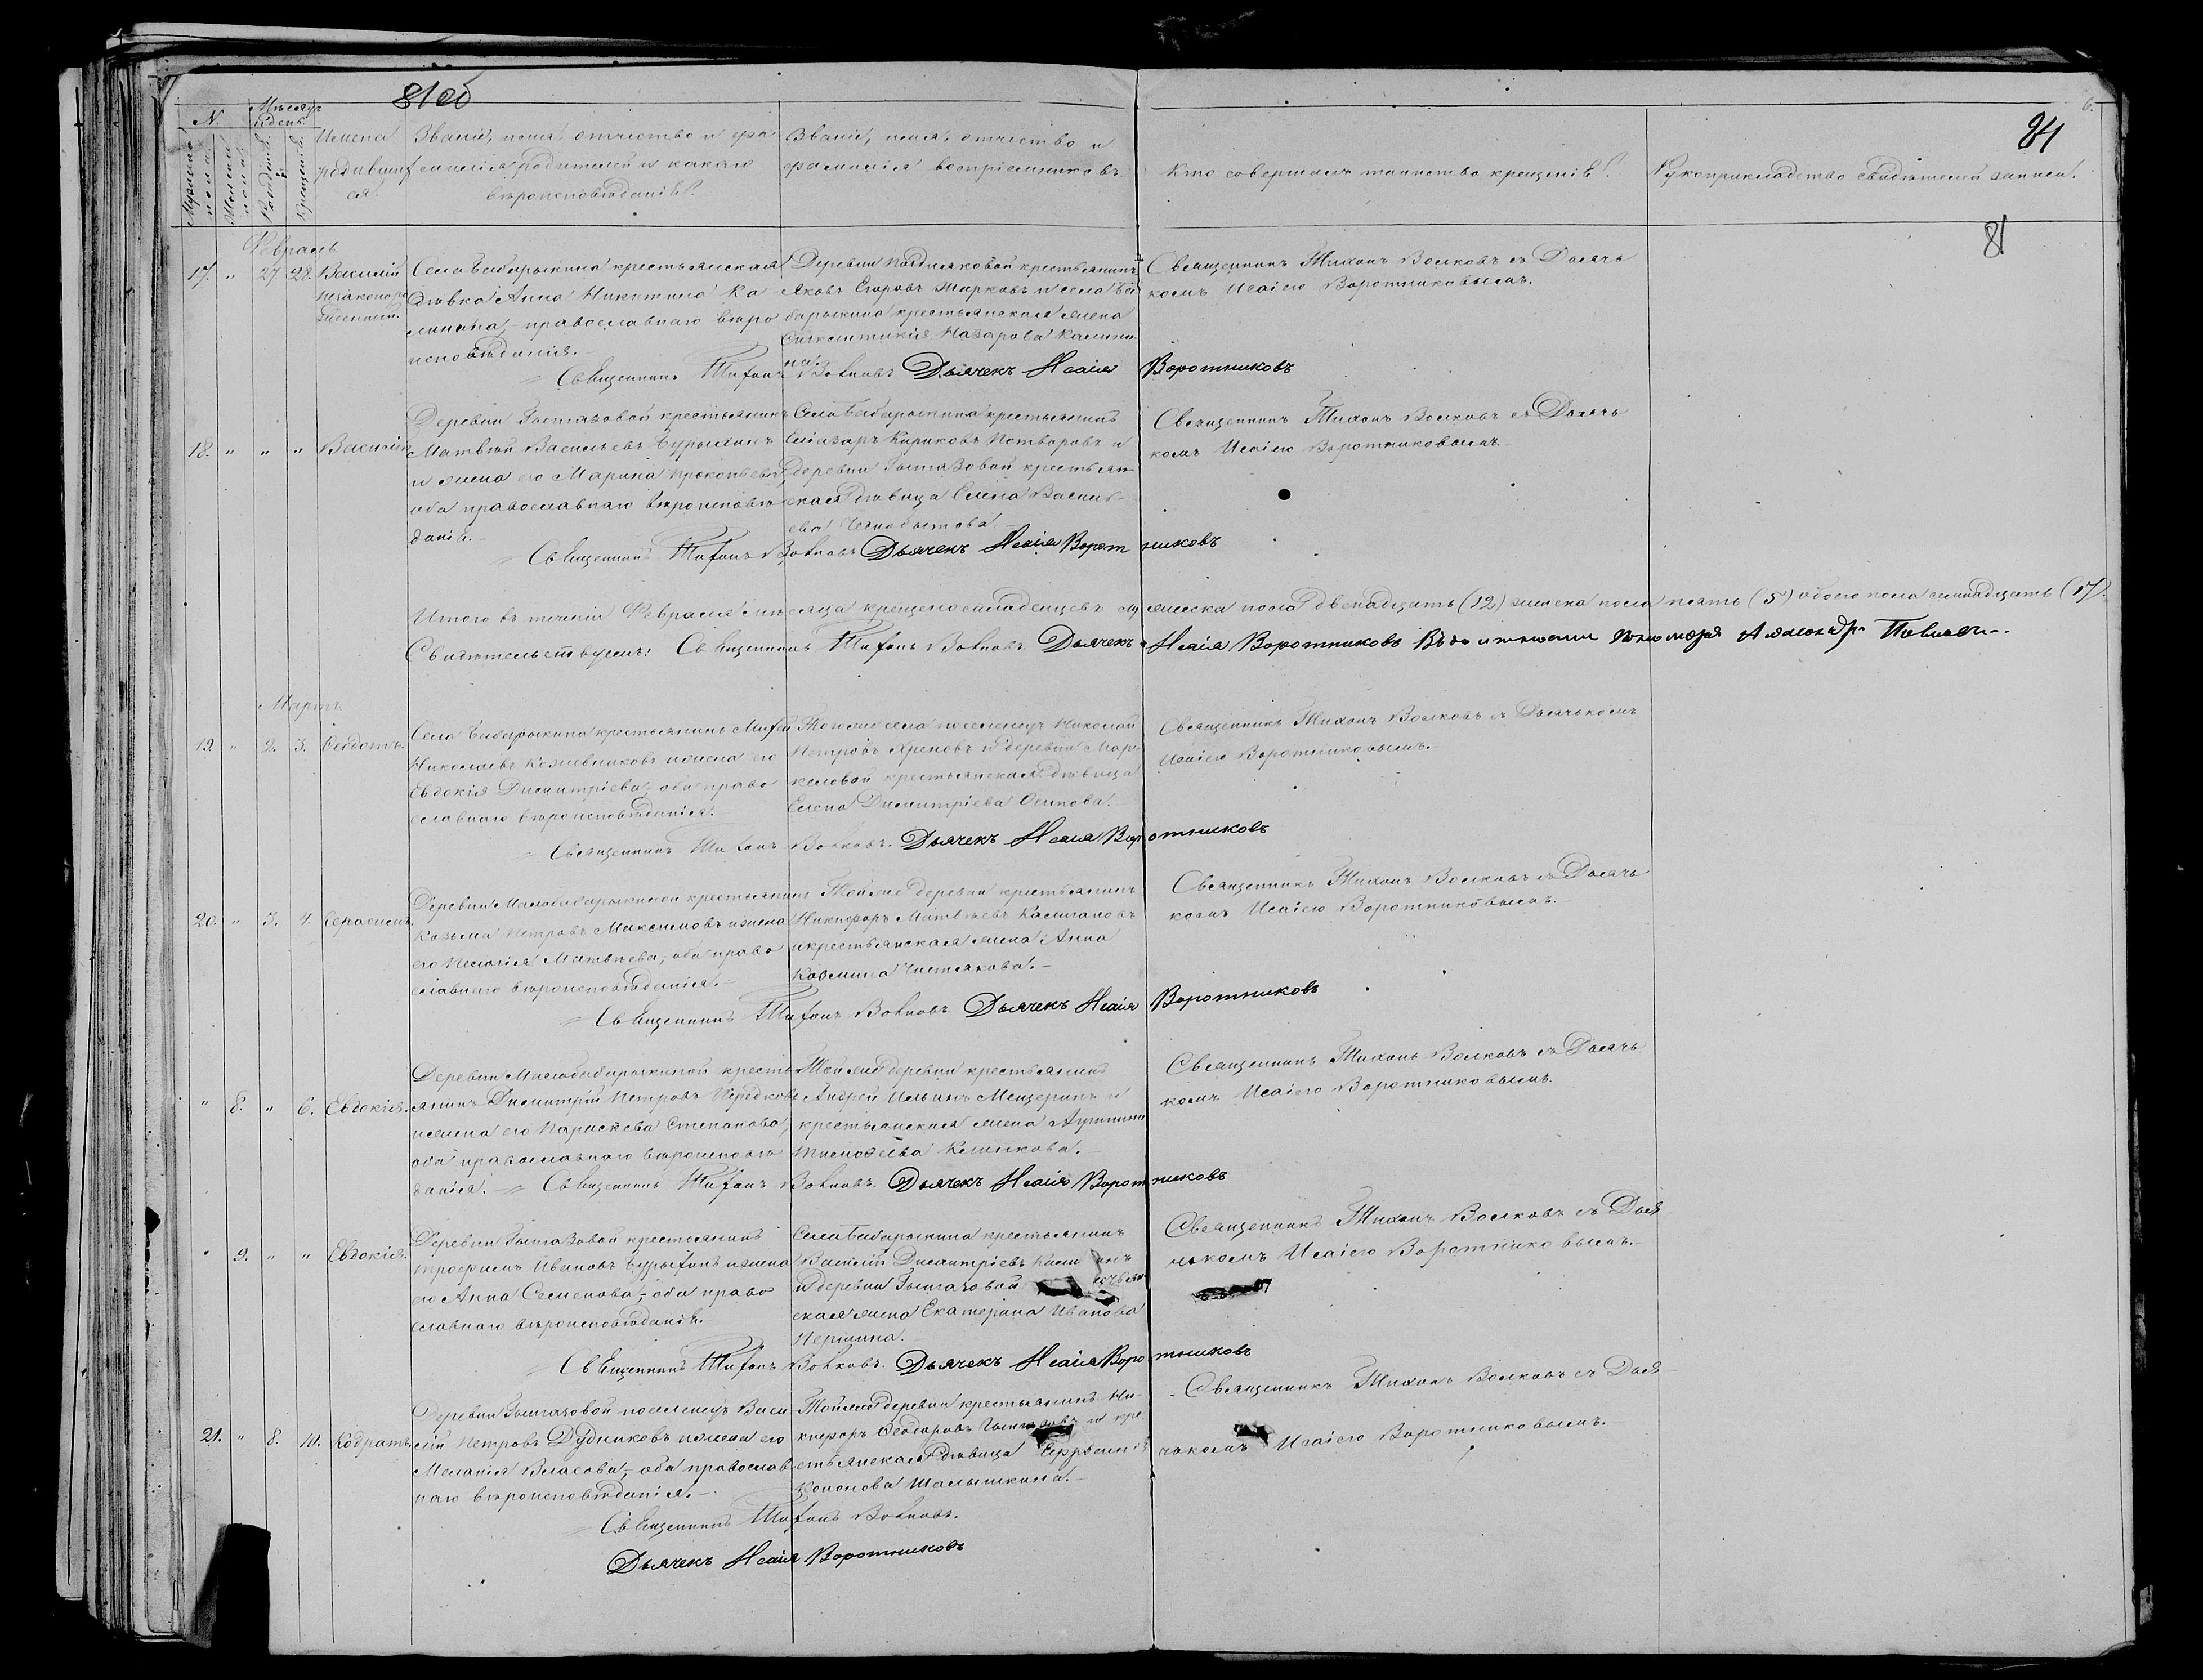 81 об
6.
81
81
N.
Мѣсяцъ
и день.
Мужеска
пола
Женска
пола
Рожденія
Крещенія
Имена
родивших
ся.
Званіе, имя, отчество и фа
милія родителей и какого
вѣроисповѣданія.
Званіе, имя, отчество и
фамилія воспріемниковъ.
Кто совершалъ таинство крещенія.
Рукоприкладство свидѣтелей записи.
Февраль
17. " 27. 28. Василій
незаконоро
жденный.
Села Бабарыкина крестьянская
дѣвка Анна Никитина Ка
линина, православнаго вѣро
исповѣданія.
крестьянинъ
Яковъ Егоровъ Марковъ и села Ба
барыкина крестьянская жена
Синклитикія Назарова Калини
на.
Священникъ Тихонъ Волковъ съ Дьячь
комъ Исаіею Воротниковымъ.
Священникъ Тихонъ Волковъ Дьячекъ Исаія Воротниковъ
18. " " " Василій
Деревни крестьянинъ
Матвѣй Васильевъ Бурыхинъ
и жена его Марина Прокопьева,
оба православнаго вѣроисповѣ
данія.
Села Бабарыкина крестьянинъ
Елизаръ Кириковъ и
деревни крестьян
ская дѣвица Елена Василь
ева
Священникъ Тихонъ Волковъ съ Дьячь
комъ Исаіею Воротниковымъ
Священникъ Тихонъ Волковъ Дьячекъ Исаія Воротниковъ
Итого въ теченіи Февраля мѣсяца крещено младенцевъ мужеска пола двенадцать (12) женска пола пять (5) обоего пола семнадцать (17).
Свидѣтельствуемъ: Священникъ Тихонъ Волковъ Дьячекъ Исаія Воротниковъ Въ должности Пономаря Александръ
Мартъ
19 " 2. 3. Ѳеодотъ.
Села Бабарыкина крестьянинъ
Николаевъ Кожевниковъ и жена его
Евдокія Димитріева, оба право
славнаго вѣроисповѣданія.
Того же села поселенецъ Николай
Петровъ и деревни Мар
келовой крестьянская дѣвица
Елена Димитріева Осипова.
Священникъ Тихонъ Волковъ съ Дьячькомъ
Исаіею Воротниковымъ.
Священникъ Тихонъ Волковъ. Дьячекъ Исаія Воротниковъ
20. " 3. 4. Герасимъ.
Деревни Малобабарыкиной крестьянинъ
Козьма Петровъ Максимовъ и жена
его Пелагія Матвѣева, оба право
славнаго вѣроисповѣданія.
Той же деревни крестьянинъ
Никифоръ Матвѣевъ
и крестьянская жена Анна
Козмина Чистякова.
Священникъ Тихонъ Волковъ съ Дьячь
комъ Исаіею Воротниковымъ.
Священникъ Тихонъ Волковъ Дьячекъ Исаія Воротниковъ
" 8. " 6. Евдокія.
Деревни Малобабарыкиной кресть
янинъ Димитрій Петровъ
и жена его Параскева Степанова,
оба православнаго вѣроисповѣ
данія.
Той же деревни крестьянинъ
Андрей Ильинъ Мещеринъ и
крестьянская жена
Тимофеева
Священникъ Тихонъ Волковъ съ Дьячь
комъ Исаіею Воротниковымъ.
Священникъ Тихонъ Волковъ. Дьячекъ Исаія Воротниковъ
" 9. " " Евдокія.
Деревни крестьянинъ
Трофимъ Ивановъ Бурыхинъ и жена
его Анна Семенова, оба право
славнаго вѣроисповѣданія.
Села Бабарыкина крестьянинъ
Василій Димитріевъ
и деревни
ская жена Екатерина Иванова
Першина.
Священникъ Тихонъ Волковъ съ Дья
чькомъ Исаіею Воротниковымъ.
Священникъ Тихонъ Волковъ. Дьячекъ Исаія Воротниковъ
21. " 8. 10. Кодратъ.
Деревни поселенецъ Васи
лій Петровъ Дудниковъ и жена его
Меланія Власова, оба православ
наго вѣроисповѣданія.
Той же деревни крестьянинъ Ни
кифоръ Ѳеодоровъ и кре
стьянская дѣвица
Кононова Малышкина.
Священникъ Тихонъ Волковъ съ Дья
чькомъ Исаіею Воротниковымъ.
Священникъ Тихонъ Волковъ.
Дьячекъ Исаія Воротниковъ